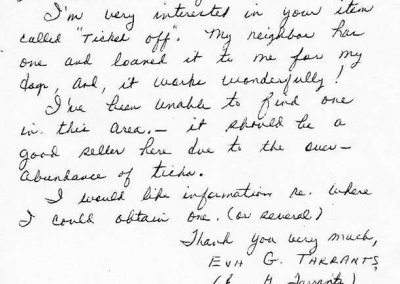 I'm very interested in your item
called "Ticked off". My neighbor has
one and loaned it to me for my
dogs, and, it works wonderfully!
I've been unable to find one
in this area. – it should be a
good seller here due to the over–
abundance of ticks.
I would like information re. where
I could obtain one. (or several)
Thank you very much,
EVA G. TARRANTS